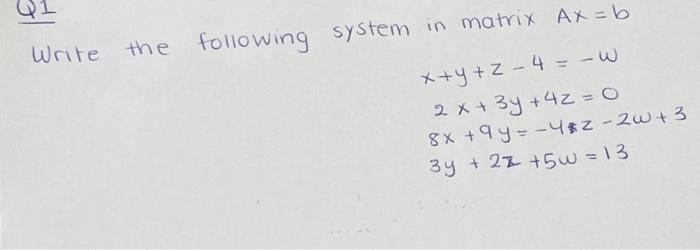 Q1
Write the following system in matrix Ax=b
x+y+z-4=-w
2x+3y+4z=0
8x+9y=-4z-2w+3
3y+2z+5w=13